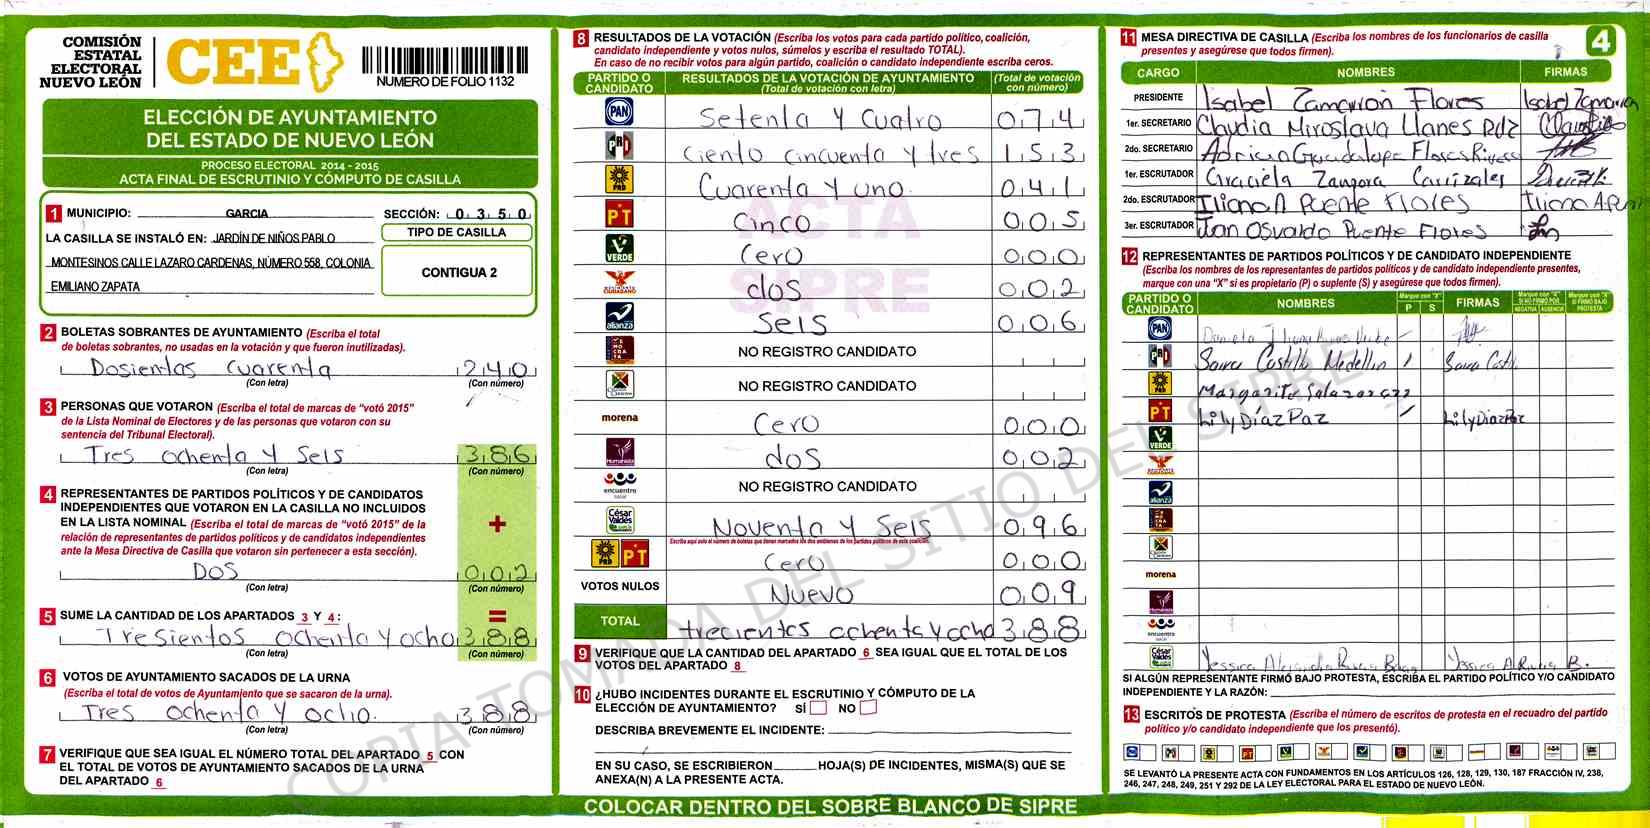 COMISIÓN
ESTATAL
ELECTORAL
NUEVO LEÓN
CEE
NUMERO DE FOLIO 1132
ELECCIÓN DE AYUNTAMIENTO
DEL ESTADO DE NUEVO LEÓN
PROCESO ELECTORAL 2014 - 2015
ACTA FINAL DE ESCRUTINIO Y CÓMPUTO DE CASILLA
1 MUNICIPIO: GARCIA SECCIÓN: 0 3 5 0
LA CASILLA SE INSTALÓ EN: JARDÍN DE NIÑOS PABLO
MONTESINOS CALLE LAZARO CARDENAS, NÚMERO 558, COLONIA
EMILIANO ZAPATA
TIPO DE CASILLA
CONTIGUA 2
2 BOLETAS SOBRANTES DE AYUNTAMIENTO (Escriba el total
de boletas sobrantes, no usadas en la votación y que fueron inutilizadas).
Dosientas cuarenta 240
(Con letra) (Con número)
3 PERSONAS QUE VOTARON (Escriba el total de marcas de “votó 2015”
de la Lista Nominal de Electores y de las personas que votaron con su
sentencia del Tribunal Electoral).
Tres ochenta y seis 386
(Con letra) (Con número)
4 REPRESENTANTES DE PARTIDOS POLÍTICOS Y DE CANDIDATOS
INDEPENDIENTES QUE VOTARON EN LA CASILLA NO INCLUIDOS
EN LA LISTA NOMINAL (Escriba el total de marcas de “votó 2015” de la
relación de representantes de partidos políticos y de candidatos independientes
ante la Mesa Directiva de Casilla que votaron sin pertenecer a esta sección).
+
DOS 002
(Con letra) (Con número)
5 SUME LA CANTIDAD DE LOS APARTADOS 3 Y 4: =
Tresientos ochenta y ocho 388
(Con letra) (Con número)
6 VOTOS DE AYUNTAMIENTO SACADOS DE LA URNA
(Escriba el total de votos de Ayuntamiento que se sacaron de la urna).
Tres ochenta y ocho. 388
(Con letra) (Con número)
7 VERIFIQUE QUE SEA IGUAL EL NÚMERO TOTAL DEL APARTADO 5 CON
EL TOTAL DE VOTOS DE AYUNTAMIENTO SACADOS DE LA URNA
DEL APARTADO 6
8 RESULTADOS DE LA VOTACIÓN (Escriba los votos para cada partido político, coalición,
candidato independiente y votos nulos, súmelos y escriba el resultado TOTAL).
En caso de no recibir votos para algún partido, coalición o candidato independiente escriba ceros.
PARTIDO O CANDIDATO RESULTADOS DE LA VOTACIÓN DE AYUNTAMIENTO (Total de votación con letra) (Total de votación con número)
PAN Setenta y cuatro 074
PRI ciento cincuenta y tres 153
PRD Cuarenta y uno. 041
PT Cinco 005
VERDE Cero 000
dos 002
alianza seis 006
NO REGISTRO CANDIDATO
NO REGISTRO CANDIDATO
morena Cero 000
Humanista dos 002
encuentro social NO REGISTRO CANDIDATO
César Valdés Noventa y Seis 096
Escriba aquí solo el número de boletas que tienen marcados los dos emblemas de los partidos políticos de esta coalición.
PRD PT Cero 000
VOTOS NULOS Nuevo 009
TOTAL trecientos ochenta y ocho 388
9 VERIFIQUE QUE LA CANTIDAD DEL APARTADO 6 SEA IGUAL QUE EL TOTAL DE LOS
VOTOS DEL APARTADO 8
10 ¿HUBO INCIDENTES DURANTE EL ESCRUTINIO Y CÓMPUTO DE LA
ELECCIÓN DE AYUNTAMIENTO? SÍ NO
DESCRIBA BREVEMENTE EL INCIDENTE:
EN SU CASO, SE ESCRIBIERON HOJA(S) DE INCIDENTES, MISMA(S) QUE SE
ANEXA(N) A LA PRESENTE ACTA.
COLOCAR DENTRO DEL SOBRE BLANCO DE SIPRE
ACTA
SIPRE
COPIA TOMADA DEL SITIO DEL SIPRE
11 MESA DIRECTIVA DE CASILLA (Escriba los nombres de los funcionarios de casilla
presentes y asegúrese que todos firmen).
4
CARGO NOMBRES FIRMAS
PRESIDENTE Isabel Zamarron Flores Isabel Zamarron
1er. SECRETARIO Claudia Miroslava Llanes Rdz
2do. SECRETARIO Adriana Guadalupe Flores Rivera
1er. ESCRUTADOR Graciela Zamora Carrizales
2do. ESCRUTADOR Iliana A Puente Flores Iliana A. Puen
3er. ESCRUTADOR Juan Osvaldo Puente Flores
12 REPRESENTANTES DE PARTIDOS POLÍTICOS Y DE CANDIDATO INDEPENDIENTE
(Escriba los nombres de los representantes de partidos políticos y de candidato independiente presentes,
marque con una "X" si es propietario (P) o suplente (S) y asegúrese que todos firmen).
PARTIDO O CANDIDATO NOMBRES Marque con "X" P S FIRMAS Marque con "X" SI NO FIRMÓ POR NEGATIVA AUSENCIA Marque con "X" SI FIRMÓ BAJO PROTESTA
PAN Daniela
PRI Sara Castillo Medellin
PRD Margarito Salazar
PT Lily Díaz Paz Lily Díaz Paz
VERDE
alianza
morena
Humanista
encuentro social
César Valdés Yessica Alejandra
SI ALGÚN REPRESENTANTE FIRMÓ BAJO PROTESTA, ESCRIBA EL PARTIDO POLÍTICO Y/O CANDIDATO
INDEPENDIENTE Y LA RAZÓN:
13 ESCRITOS DE PROTESTA (Escriba el número de escritos de protesta en el recuadro del partido
político y/o candidato independiente que los presentó).
SE LEVANTÓ LA PRESENTE ACTA CON FUNDAMENTOS EN LOS ARTÍCULOS 126, 128, 129, 130, 187 FRACCIÓN IV, 238,
246, 247, 248, 249, 251 Y 292 DE LA LEY ELECTORAL PARA EL ESTADO DE NUEVO LEÓN.